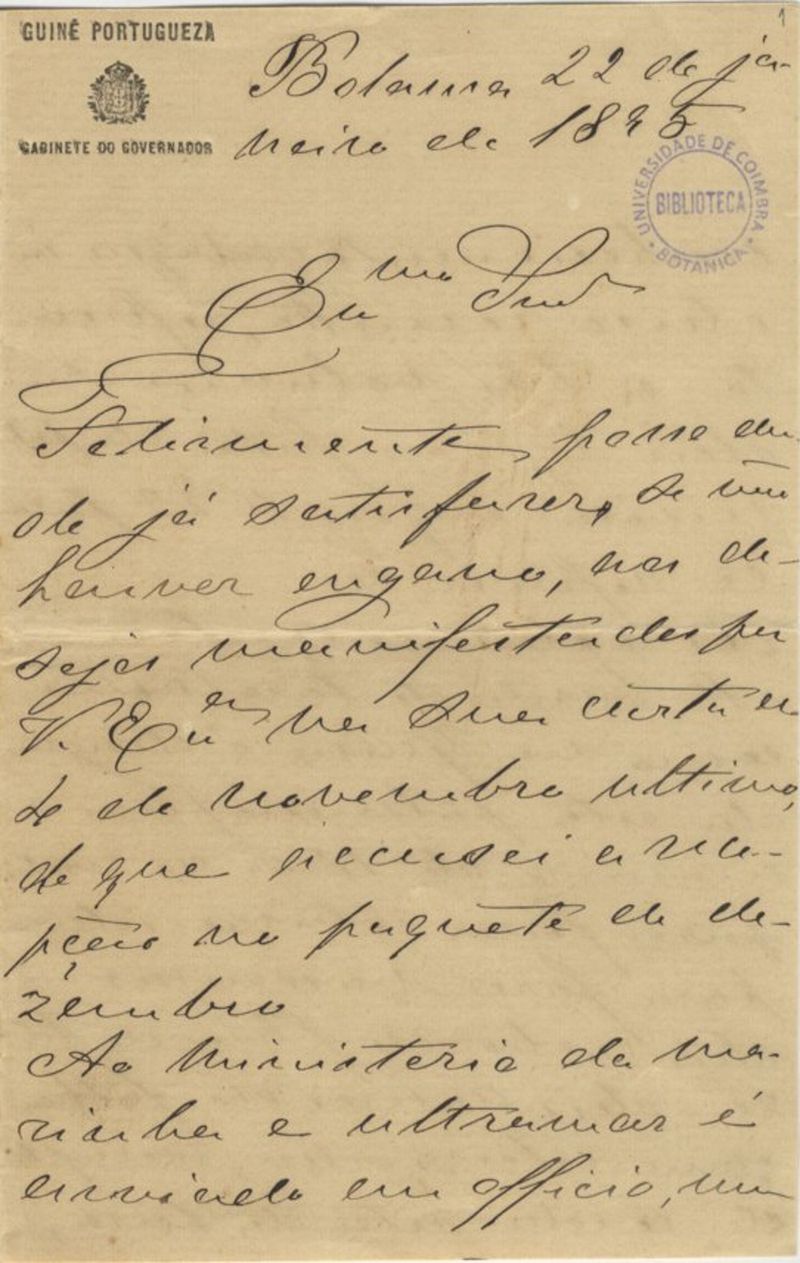 1
GUINÉ PORTUGUEZA
GABINETE DO GOVERNADOR
Bolama 22 de ja-
neiro de 1885
UNIVERSIDADE DE COIMBRA
BIBLIOTECA
BOTANICA
Exmo Snr
Felizmente posso des-
de já satisfazer, se não
houver engano, aos de-
sejos manifestados por
V. Exa na sua carta de
4 de novembro ultimo,
de que accusei a rece-
pção no paquete de de-
zembro
Ao Ministerio da ma-
rinha e ultramar é
enviado em officio, um